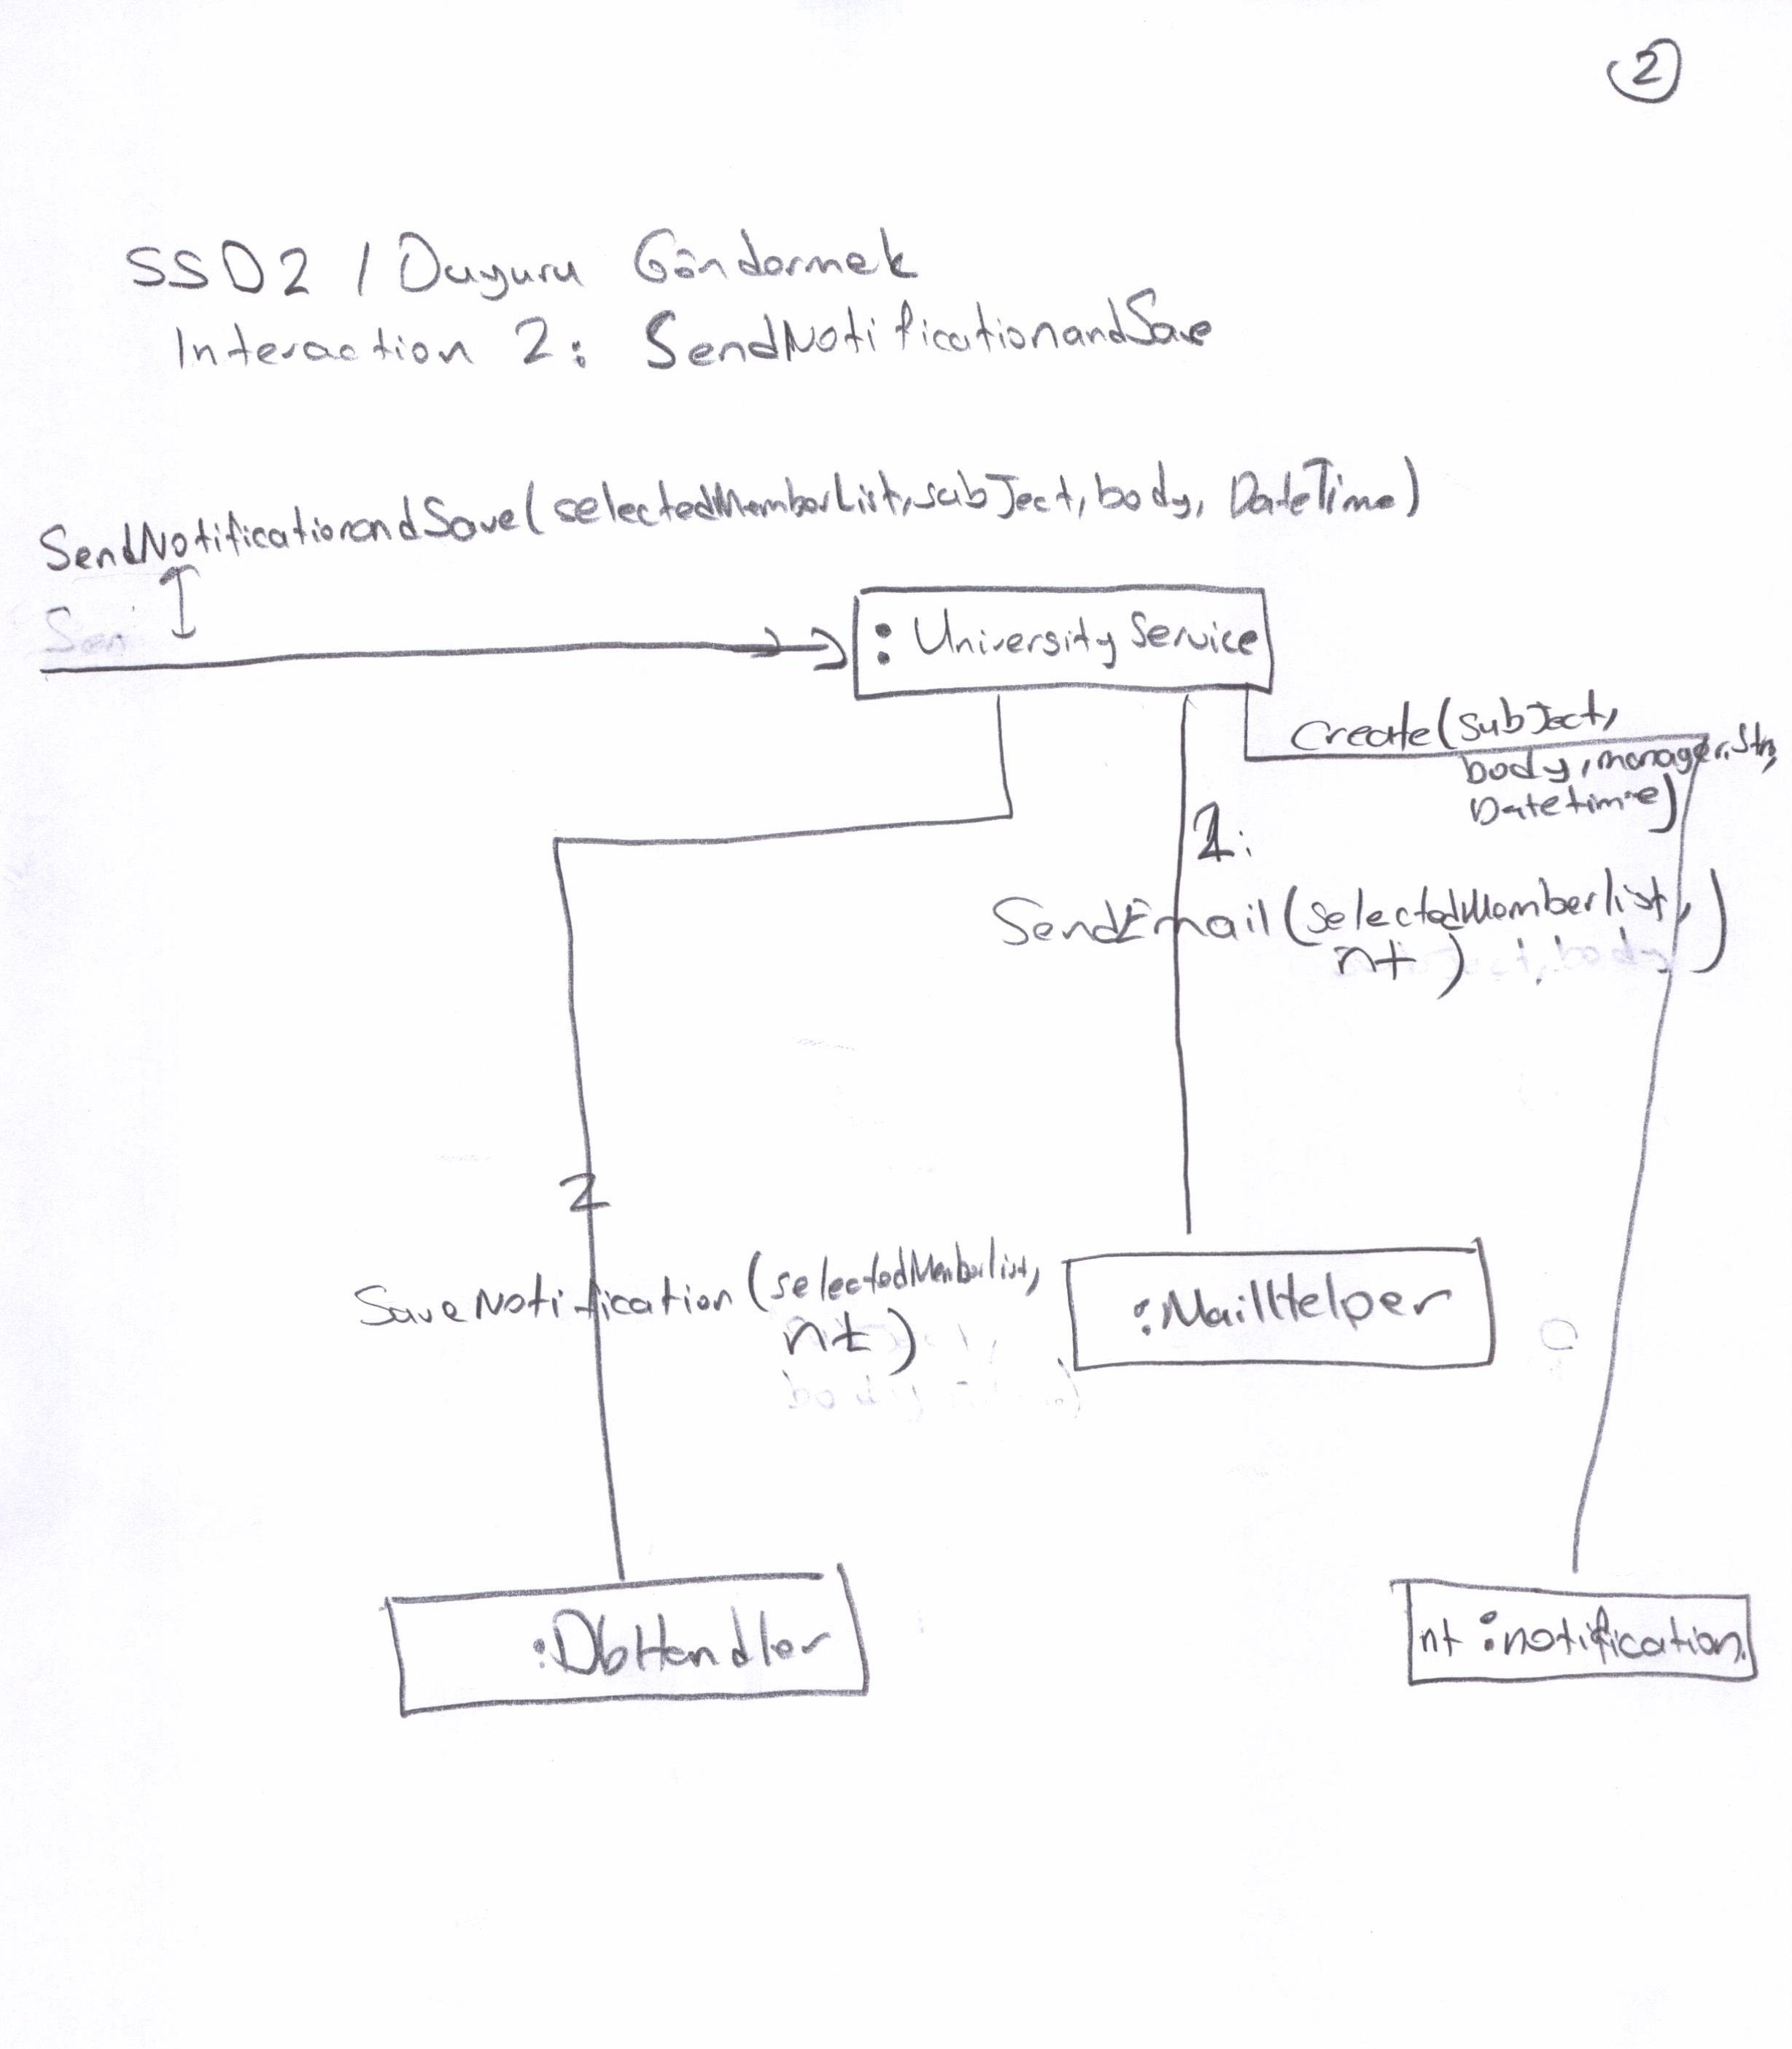 2
SSD2 / Duyuru Göndermek
Interaction 2: SendNotificationandSave
SendNotificationandSave(selectedMemberList,subJect, body, DateTime)
Sen
: University Service
Create(SubJect,
body, manager.
Datetime)
1:
SendEmail(selectedMemberlist,)
nt)
t, body
2
SaveNotification(selectedMemberlist,
nt)
body
:MailHelper
:DbHandler
nt :notification